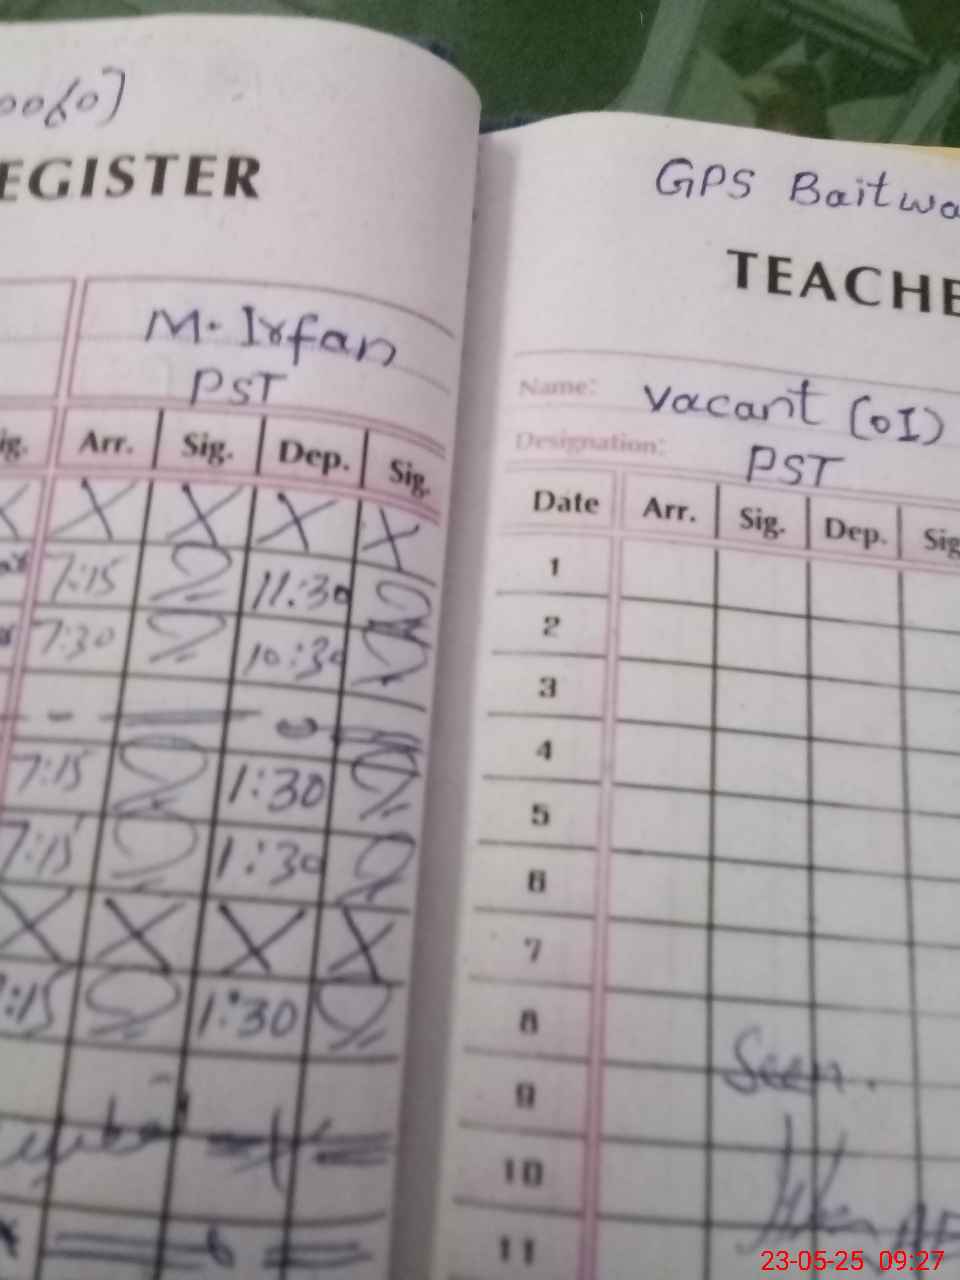 EGISTER
M. Irfan
PST
ig. Arr. Sig. Dep. Sig.
X X X X X
7:15 11:30
7:30 10:30
7:15 1:30
7:15 1:30
X X X X
:15 1:30
GPS Baitwa
TEACHE
Name: Vacant (01)
Designation: PST
Date Arr. Sig. Dep. Sig
1
2
3
4
5
6
7
8
Seen.
9
10
11
23-05-25 09:27